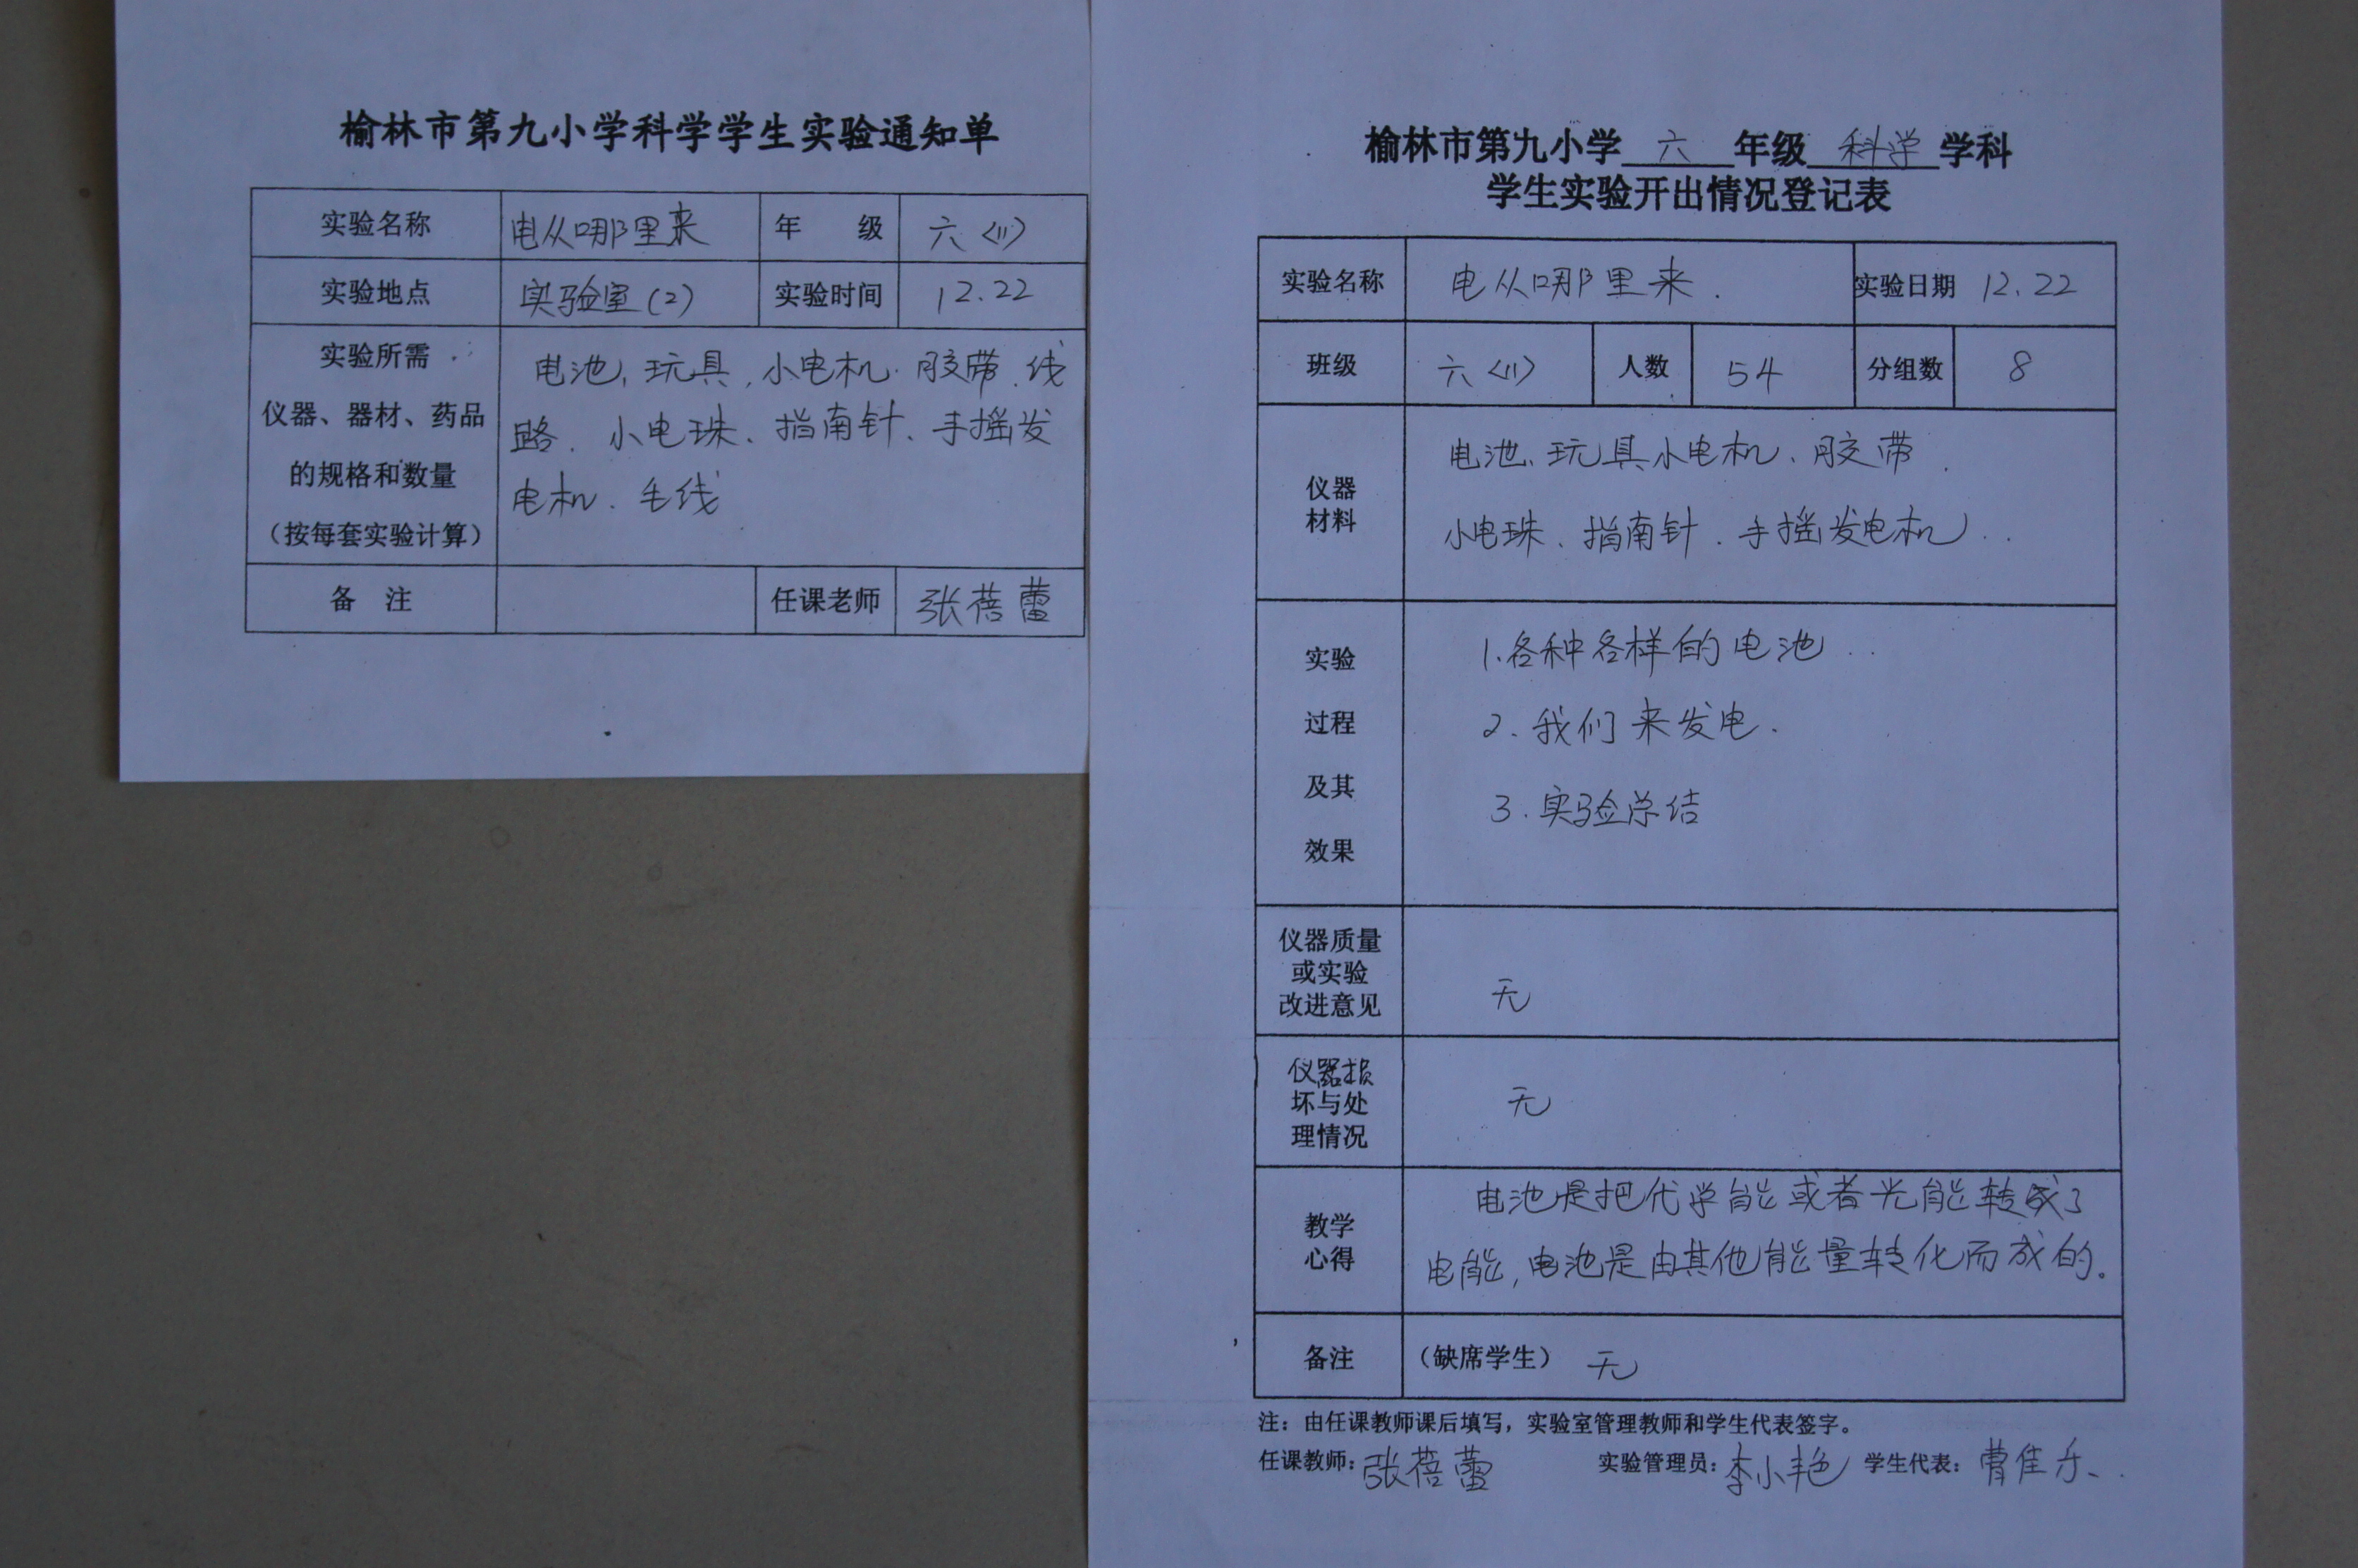 榆林市第九小学科学学生实验通知单
实验名称 电从哪里来 年 级 六〈11〉
实验地点 实验室(2) 实验时间 12.22
实验所需
仪器、器材、药品
的规格和数量
(按每套实验计算)
电池、玩具、小电机、胶带、线
路、小电珠、指南针、手摇发
电机、毛线
备 注 任课老师 张蓓蕾
榆林市第九小学 六 年级 科学 学科
学生实验开出情况登记表
实验名称 电从哪里来. 实验日期 12.22
班级 六〈11〉 人数 54 分组数 8
仪器
材料
电池、玩具小电机、胶带、
小电珠、指南针、手摇发电机
实验
过程
及其
效果
1.各种各样的电池
2.我们来发电.
3.实验总结
仪器质量
或实验
改进意见
无
仪器损
坏与处
理情况
无
教学
心得
电池是把化学能或者光能转成了
电能,电池是由其他能量转化而成的。
备注 (缺席学生) 无
注：由任课教师课后填写，实验室管理教师和学生代表签字。
任课教师：张蓓蕾 实验管理员：李小艳 学生代表：曹佳乐